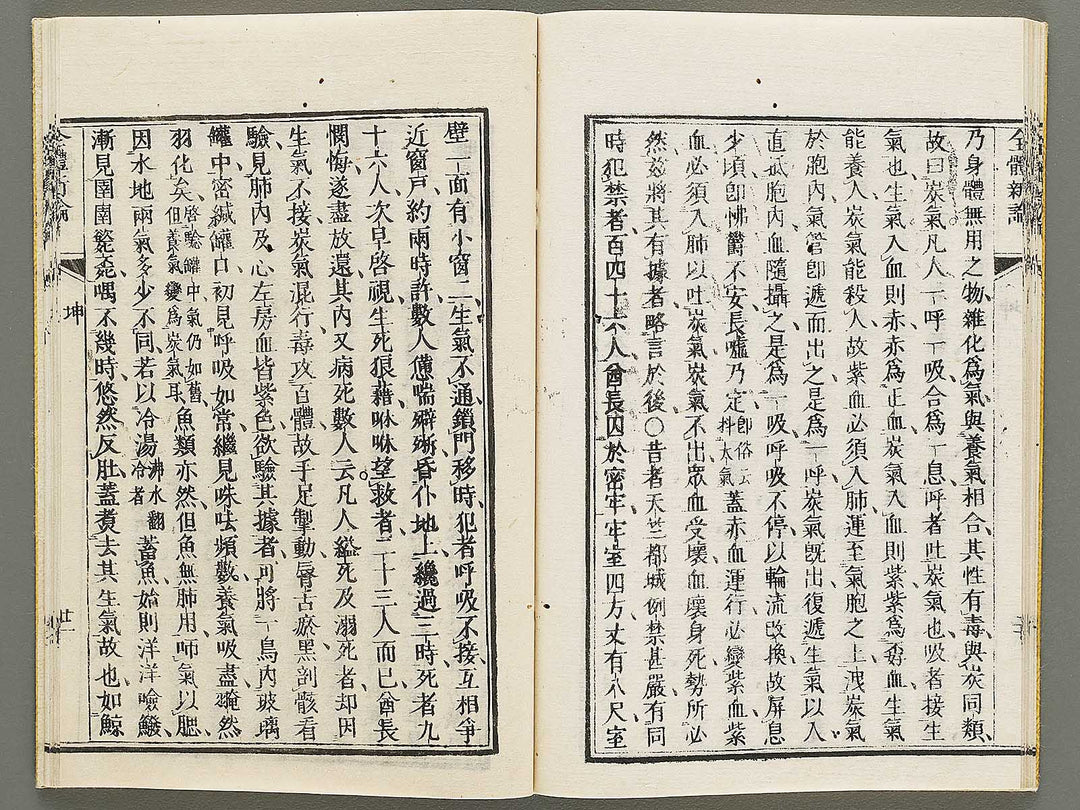 全體新論
乃身體無用之物雜化爲氣與養氣相合其性有毒與炭同類
故曰炭氣凡人一呼一吸合爲一息呼者吐炭氣也吸者接生
氣也生氣入血則赤赤爲正血炭氣入血則紫紫爲歹血生氣
能養人炭氣能殺人故紫血必須入肺運至氣胞之上洩炭氣
於胞內氣管卽遞而出之是爲一呼炭氣旣出復遞生氣以入
直抵胞內血隨攝之是爲一吸呼吸不停以輪流改換故屏息
少頃卽怫欝不安長噓乃定卽俗云抖大氣蓋赤血運行必變紫血紫
血必須入肺以吐炭氣炭氣不出眾血受壞血壞身死勢所必
然茲將其有據者略言於後○昔者天竺都城例禁甚嚴有同
時犯禁者百四十六人酋長囚於密牢牢室四方丈有八尺室
壁一面有小窗二生氣不通鎖門移時犯者呼吸不接互相爭
近窗戶約兩時許數人僡喘㿇㾷昏仆地上纔過三時死者九
十六人次早啓視生死狼藉咻咻望救者二十三人而已酋長
憫悔遂盡放還其內又病死數人云凡人縊死及溺死者却因
生氣不接炭氣混行毒攻百體故手足掣動唇舌瘀黑剖骸看
驗見肺內及心左房血皆紫色欲驗其據者可將一鳥內玻璃
罐中密緘罐口初見呼吸如常繼見咮呿頻數養氣吸盡奄然
羽化矣啓驗罐中氣仍如舊但養氣變爲炭氣耳魚類亦然但魚無肺用呬氣以腮
因水地兩氣多少不同若以冷湯沸水翻冷者蓄魚始則洋洋噞鰓
漸見圉圉㲯㲯喁不幾時悠然反肚蓋煑去其生氣故也如鯨
坤
廿一